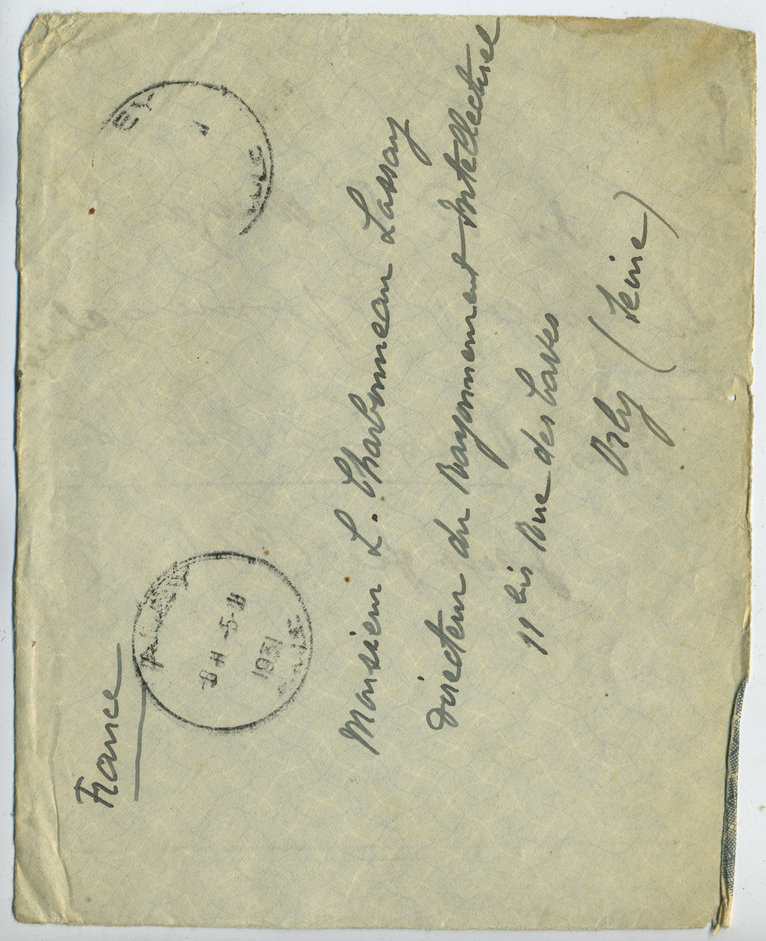 France
8 H -5-11
1931
Monsieur L. Charbonneau Lassay
Directeur du Rayonnement Intellectuel
11 bis Rue des Laves
Orly (Seine)